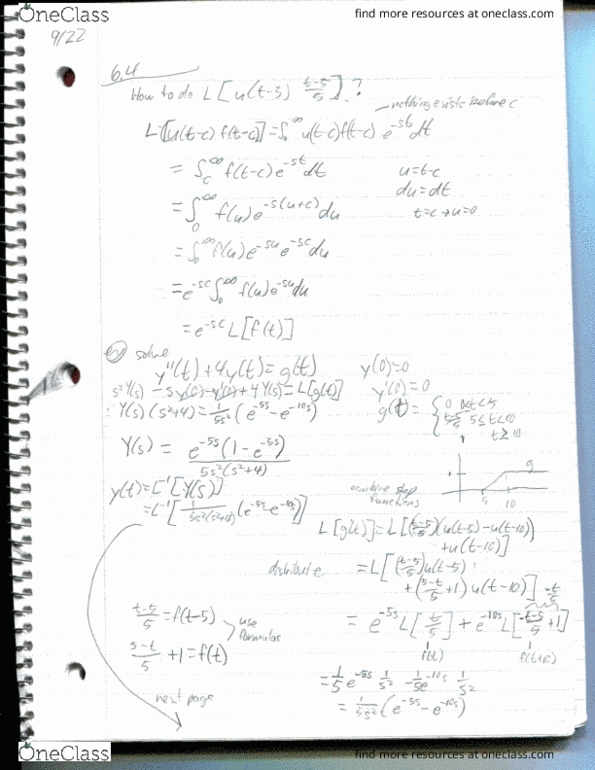 OneClass
find more resources at oneclass.com
9/22
6.4
How to do L[u(t-5) t-5/5]?
nothing exists before c
L[u(t-c) f(t-c)] = ∫₀^∞ u(t-c)f(t-c) e^-st dt
= ∫c^∞ f(t-c)e^-st dt
u=t-c
du=dt
t=c→u=0
= ∫₀^∞ f(u)e^-s(u+c) du
= ∫₀^∞ f(u)e^-su e^-sc du
= e^-sc ∫₀^∞ f(u)e^-su du
= e^-sc L[f(t)]
ex solve
y''(t) + 4y(t) = g(t)
y(0)=0
s²Y(s) - sy(0) - y'(0) + 4Y(s) = L[g(t)]
y'(0)=0
: Y(s)(s²+4) = 1/5s² (e^-5s - e^-10s)
g(t) = { 0 0≤t<5
t-5/5 5≤t<10
t≥10
Y(s) = e^-5s(1-e^-5s) / 5s²(s²+4)
y(t) = L⁻¹[Y(s)]
= L⁻¹[1/5s²(s²+4) (e^-5s - e^-10s)]
1
g
5 10
combine step
functions
L[g(t)] = L[(t-5/5)(u(t-5) - u(t-10))
+ u(t-10)]
distribute
= L[(t-5/5)u(t-5)
+ (5-t/5 +1) u(t-10)]
-t/5
t-5/5 = f(t-5)
use
formulas
5-t/5 +1 = f(t)
= e^-5s L[t/5] + e^-10s L[-t-5/5 +1]
f(t)
f(t+10)
= 1/5 e^-5s 1/s² - 1/5 e^-10s 1/s²
= 1/5s² (e^-5s - e^-10s)
next page
OneClass
find more resources at oneclass.com